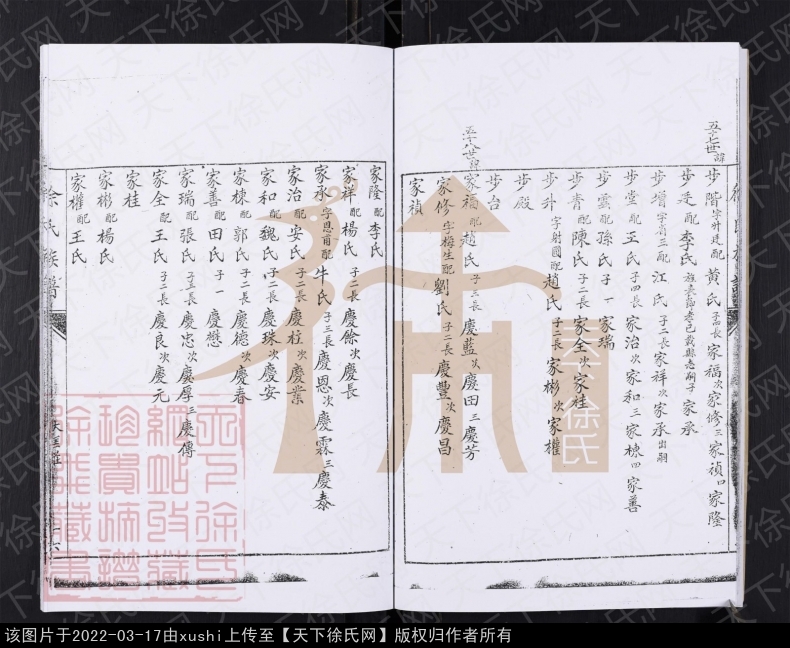 五十七世諱
步階字升廷配黃氏子四長家福次家修三家禎四家隆
步廷配李氏 家承
步增字省三配江氏子二長家祥次家承出嗣
步堂配王氏子四長家治次家和三家棟四家善
步雲配孫氏子一家瑞
步青配陳氏子二長家全次家桂
步升字射國配趙氏子二長家彬次家權
步殿
步台
五十八世
家福配趙氏子三長慶藍次慶田三慶芳
家修字梅生配劉氏子二長慶豐次慶昌
家禎
家隆配李氏
家祥配楊氏子二長慶餘次慶長
家承字恩甫配牛氏子三長慶恩次慶霖三慶泰
家治配安氏子二長慶柱次慶業
家和配魏氏子二長慶珠次慶安
家棟配郭氏子二長慶德次慶春
家善配田氏子一慶懋
家瑞配張氏子三長慶忠次慶厚三慶傳
家全配王氏子二長慶良次慶元
家桂
家彬配楊氏
家權配王氏
徐氏族譜
天下徐氏
天下徐氏网
该图片于2022-03-17由xushi上传至【天下徐氏网】版权归作者所有